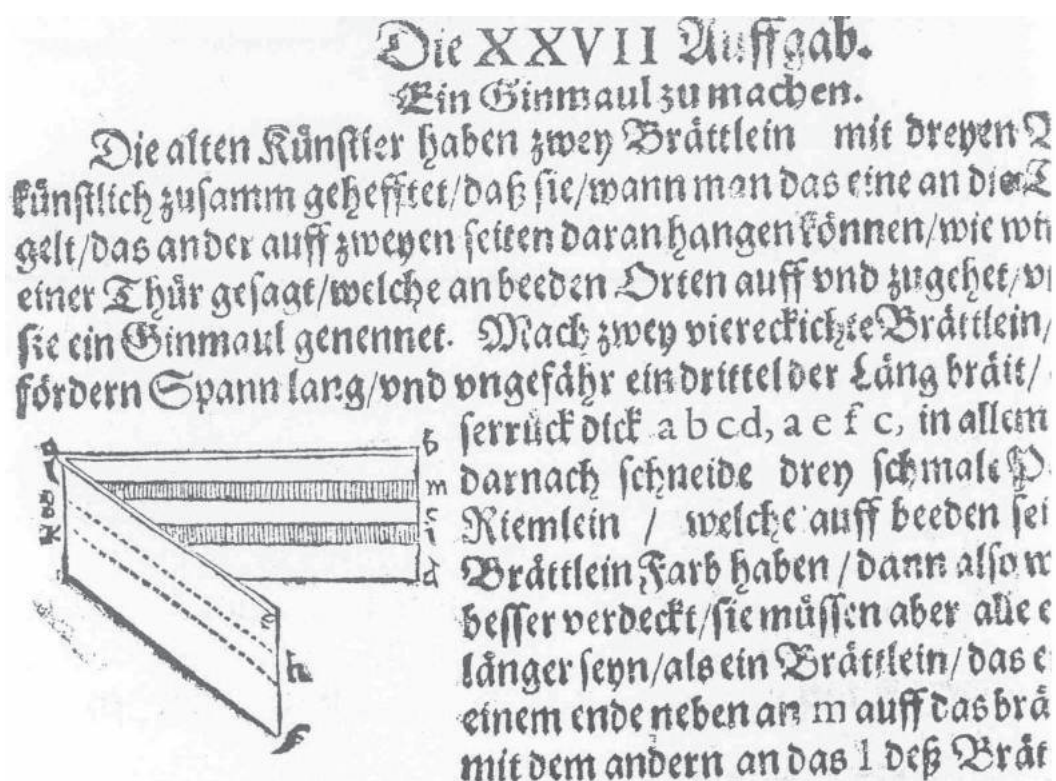 Die XXVII Auffgab.
Ein Ginmaul zu machen.
Die alten Künstler haben zwey Brättlein mit dreyen
künstlich zusamm gehefftet/daß sie/wann man das eine an die
gelt/das ander auff zweyen seiten daran hangen können/wie
einer Thür gesagt/welche an beeden Orten auff vnd zugehet/
sie ein Ginmaul genennet. Mach zwey viereckichte Brättlein/
fördern Spann lang/vnd vngefähr ein drittel der Läng bräit/
serruck dick a b c d, a e f c, in allem
darnach schneide drey schmale
Riemlein / welche auff beeden
Brättlein Farb haben / dann also
besser verdeckt/sie müssen aber alle
länger seyn/als ein Brättlein/das
einem ende neben an m auff das
mit dem andern an das l deß
a
b
l
m
g
c
k
i
d
e
h
f